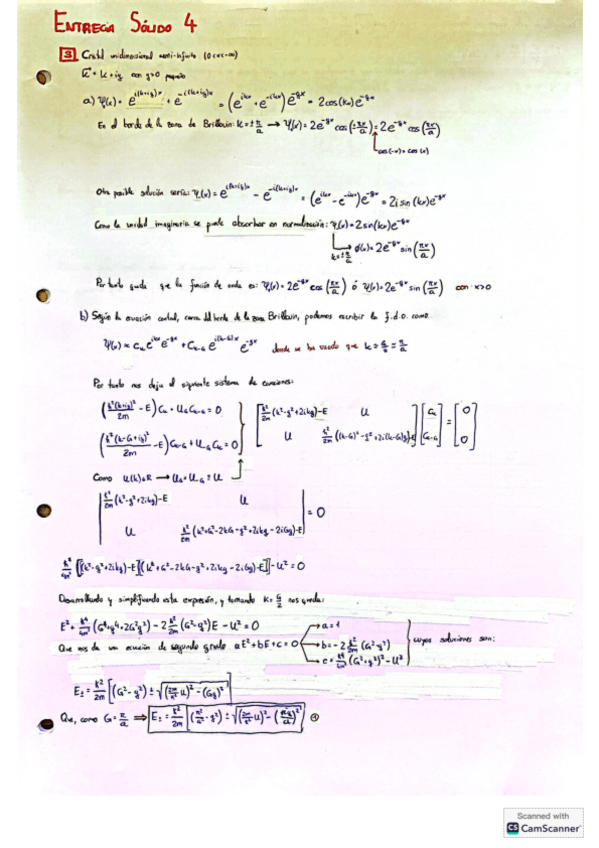 ENTREGA SÓLIDO 4
3 Cristal unidimensional semi-infinito (0<x<∞)
k = k+iq con q>0 pequeño
a) ψ(x) = e^{i(k+iq)x} + e^{-i(k+iq)x} = (e^{ikx} + e^{-ikx}) e^{-qx} = 2cos(kx) e^{-qx}
En el borde de la zona de Brillouin: k=±π/a → ψ(x) = 2e^{-qx} cos(±πx/a) = 2e^{-qx} cos(πx/a)
cos(-x) = cos(x)
Otra posible solución sería: ψ(x) = e^{i(k+iq)x} - e^{-i(k+iq)x} = (e^{ikx} - e^{-ikx}) e^{-qx} = 2i sin(kx) e^{-qx}
Como la unidad imaginaria se puede absorber en normalización: ψ(x) = 2sin(kx) e^{-qx}
k=±π/a → ϕ(x) = 2e^{-qx} sin(πx/a)
Por tanto queda que la función de onda es: ψ(x) = 2e^{-qx} cos(πx/a) ó ψ(x) = 2e^{-qx} sin(πx/a) con x>0
b) Según la ecuación central, cerca del borde de la zona Brillouin, podemos escribir la f.d.o. como
ψ(x) ≈ C_k e^{ikx} e^{-qx} + C_{k-G} e^{i(k-G)x} e^{-qx} donde se ha usado que k = G/2 = π/a
Por tanto nos deja el siguiente sistema de ecuaciones:
(ħ²(k+iq)²/2m - E) C_k + U_G C_{k-G} = 0
(ħ²(k-G+iq)²/2m - E) C_{k-G} + U_{-G} C_k = 0
[ħ²/2m (k²-q²+2ikq)-E U] [C_k] = [0]
[U ħ²/2m ((k-G)²-q²+2i(k-G)q)-E] [C_{k-G}] [0]
Como U(x)∈R → U_G = U_{-G} ≡ U
|ħ²/2m (k²-q²+2ikq)-E U|
|U ħ²/2m (k²+G²-2kG-q²+2ikq-2iGq)-E| = 0
ħ⁴/4m² [(k²-q²+2ikq)-E][(k²+G²-2kG-q²+2ikq-2iGq)-E] - U² = 0
Desarrollando y simplificando esta expresión, y tomando k = G/2 nos queda:
E² + ħ⁴/4m² (G⁴+q⁴+2G²q²) - 2 ħ²/2m (G²-q²) E - U² = 0
Que nos da una ecuación de segundo grado aE²+bE+c=0 → a=1
→ b = -2 ħ²/2m (G²-q²) cuyas soluciones son:
→ c = ħ⁴/4m² (G²+q²)² - U²
E± = ħ²/2m [(G²-q²) ± √((2m/ħ² U)² - (Gq)²)]
Que, como G = π/a ⇒ E± = ħ²/2m [(π²/a² - q²) ± √((2m/ħ² U)² - (2πq/a)²)]
Scanned with
CS CamScanner